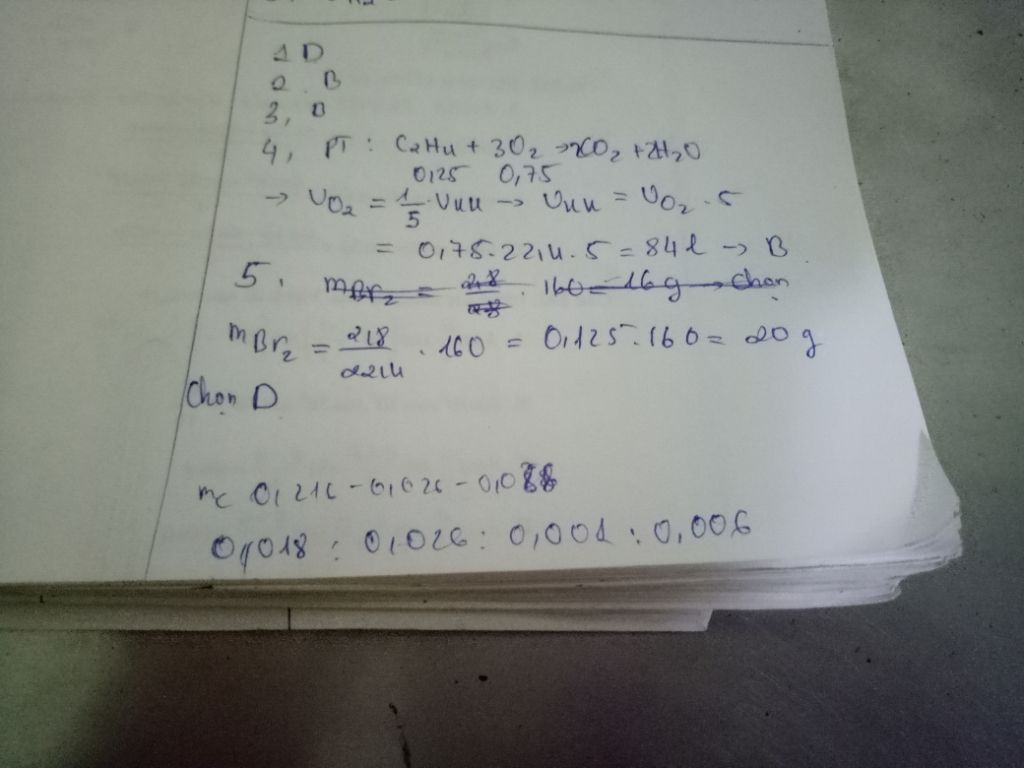 1 D
2. B
3, B
4, PT : C2H4 + 3O2 → 2CO2 + 2H2O
0,125 0,75
→ VO2 = 1/5 · Vkk → Vkk = VO2 . 5
= 0,75.22,4.5 = 84 l → B
5, mBr2 = 2,8/28 . 160 = 16 g → Chọn
mBr2 = 2,8/22,4 . 160 = 0,125.160 = 20 g
Chọn D
mc 0,216 - 0,026 -
0,018 : 0,026 : 0,001 : 0,006